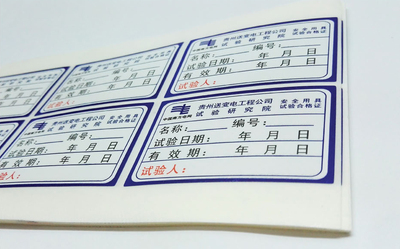 贵州送变电工程公司 安全用具
试验研究院 试验合格证
名称: 编号:
试验日期: 年 月 日
有效期: 年 月 日
试验人:
贵州送变电工程公司 安全用具
试验研究院 试验合格证
名称: 编号:
试验日期: 年 月 日
有效期: 年 月 日
试验人:
中国南方电网
贵州送变电工程公司 安全用具
试验研究院 试验合格证
名称: 编号:
试验日期: 年 月 日
有效期: 年 月 日
试验人:
年 月 日
年 月 日